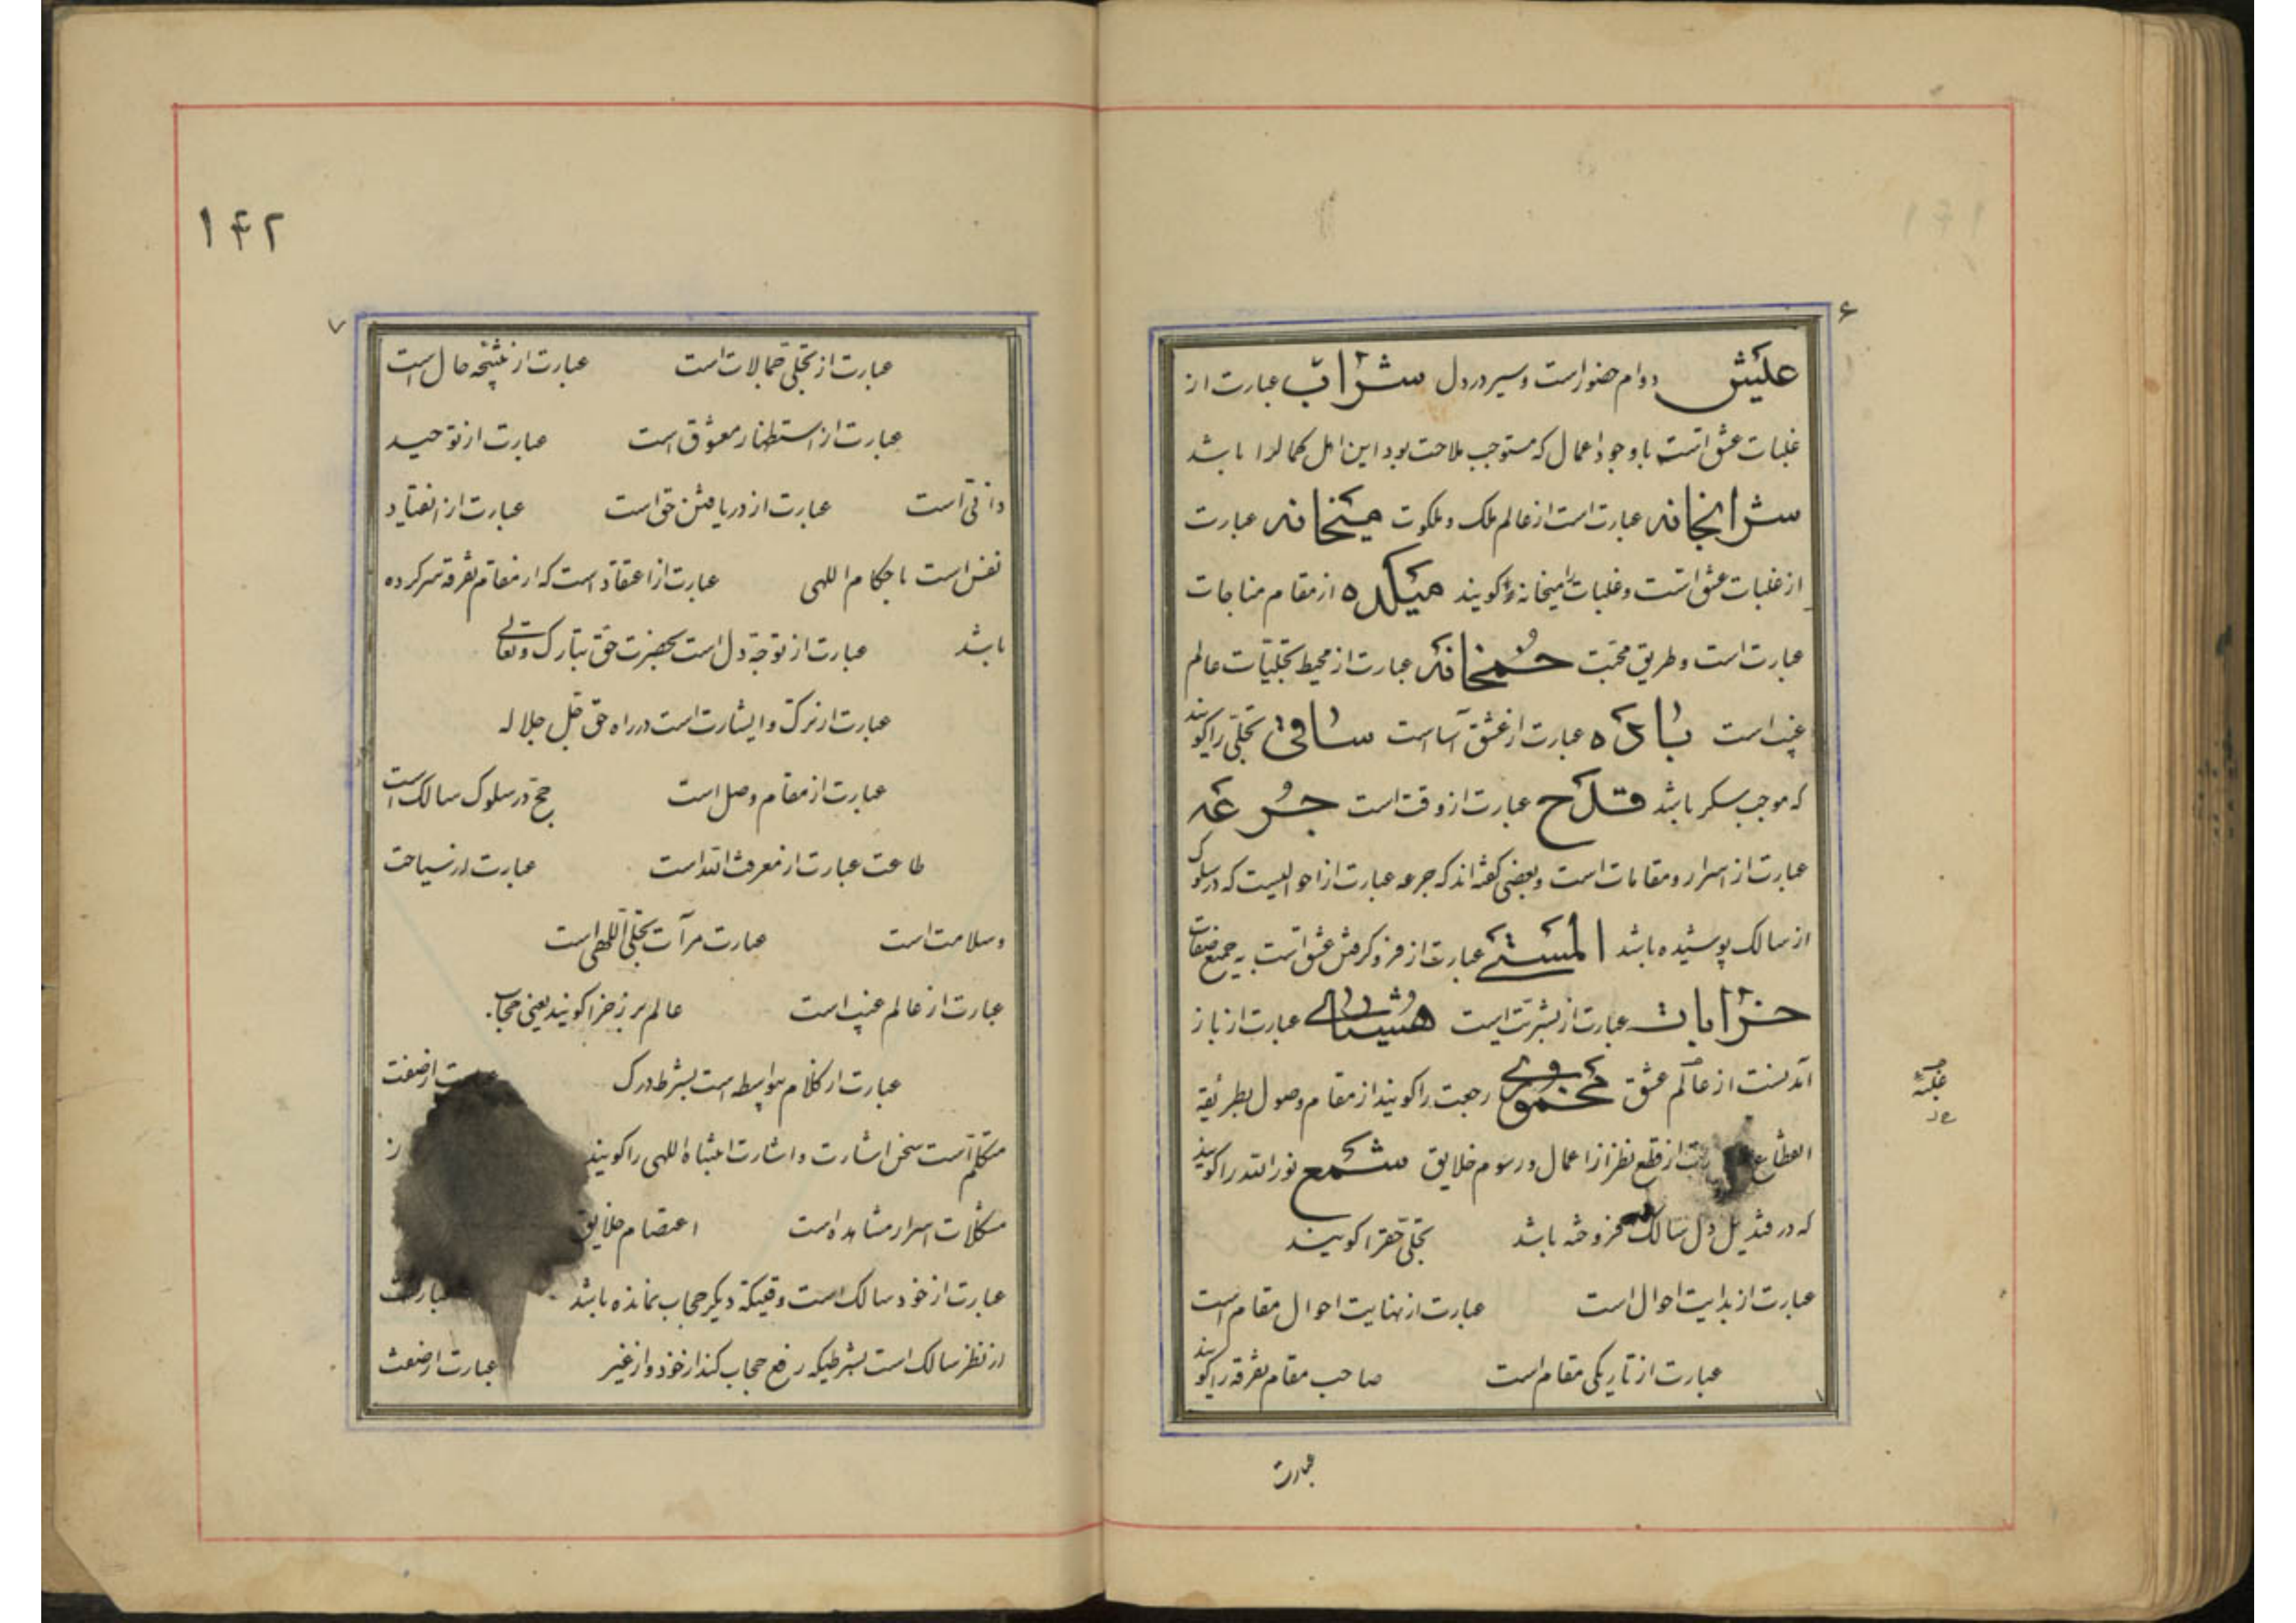 ۶
عیش دوام حضور است و سیر در دل شراب عبارت از
غلبات عشق است با وجود اعمال که مستوجب ملامت بود این اهل کمال را باشد
شرابخانه عبارت است از عالم ملک و ملکوت میخانه عبارت
از غلبات عشق است و غلبات را میخانه گویند میکده از مقام مناجات
عبارت است و طریق محبت خمخانه عبارت از محیط تجلیات عالم
غیب است باده عبارت از عشق است ساقی تجلی را گویند
که موجب سکر باشد قدح عبارت از وقت است جرعه
عبارت از اسرار و مقامات است و بعضی گفته اند که جرعه عبارت از احوالیست که در سلوک
از سالک پوشیده باشد المستی عبارت از فرو گرفتن عشق است به جمیع صفات
خرابات عبارت از بشریت است عبارت از باز
از عالم عشق مخموری رجعت را گویند از مقام وصول بطریقه
از قطع نظر از اعمال و رسوم خلایق شمع نور الله را گویند
که در قندیل دل سالک افروخته باشد تجلی حقرا گویند
عبارت از بدایت احوال است عبارت از نهایت احوال مقام است
عبارت از تاریکی مقام است صاحب مقام تفرقه را گویند
عبارت
۱۴۲
۷
عبارت از تجلی جمالات است عبارت از نتیجه حال است
عبارت از استظهار معشوق است عبارت از توحید
ذاتی است عبارت از دریافتن حق است عبارت از انقیاد
نفس است باحکام اللهی عبارت از اعتقاد است که از مقام تفرقه سر کرده
باشد عبارت از توجه دل است بحضرت حق تبارک و تعالی
عبارت از ترک و ایثار است در راه حق جل جلاله
عبارت از مقام وصل است حج در سلوک سالک است
طاعت عبارت از معرفت الله است عبارت از سیاحت
و سلامت است عبارت مرآت تجلی اللهی است
عبارت از عالم غیب است عالم برزخرا گویند یعنی حجاب
عبارت از کلام بواسطه است بشرط درک عبارت از صفت
متکلم است سخن اشارت و اشارت انتباه اللهی را گویند
مشکلات اسرار مشاهده است اعتصام خلایق
عبارت از خود سالک است وقتیکه دیگر حجاب نمانده باشد عبارت
از نظر سالک است بشرطیکه رفع حجاب کند از خود و از غیر عبارت از صفت